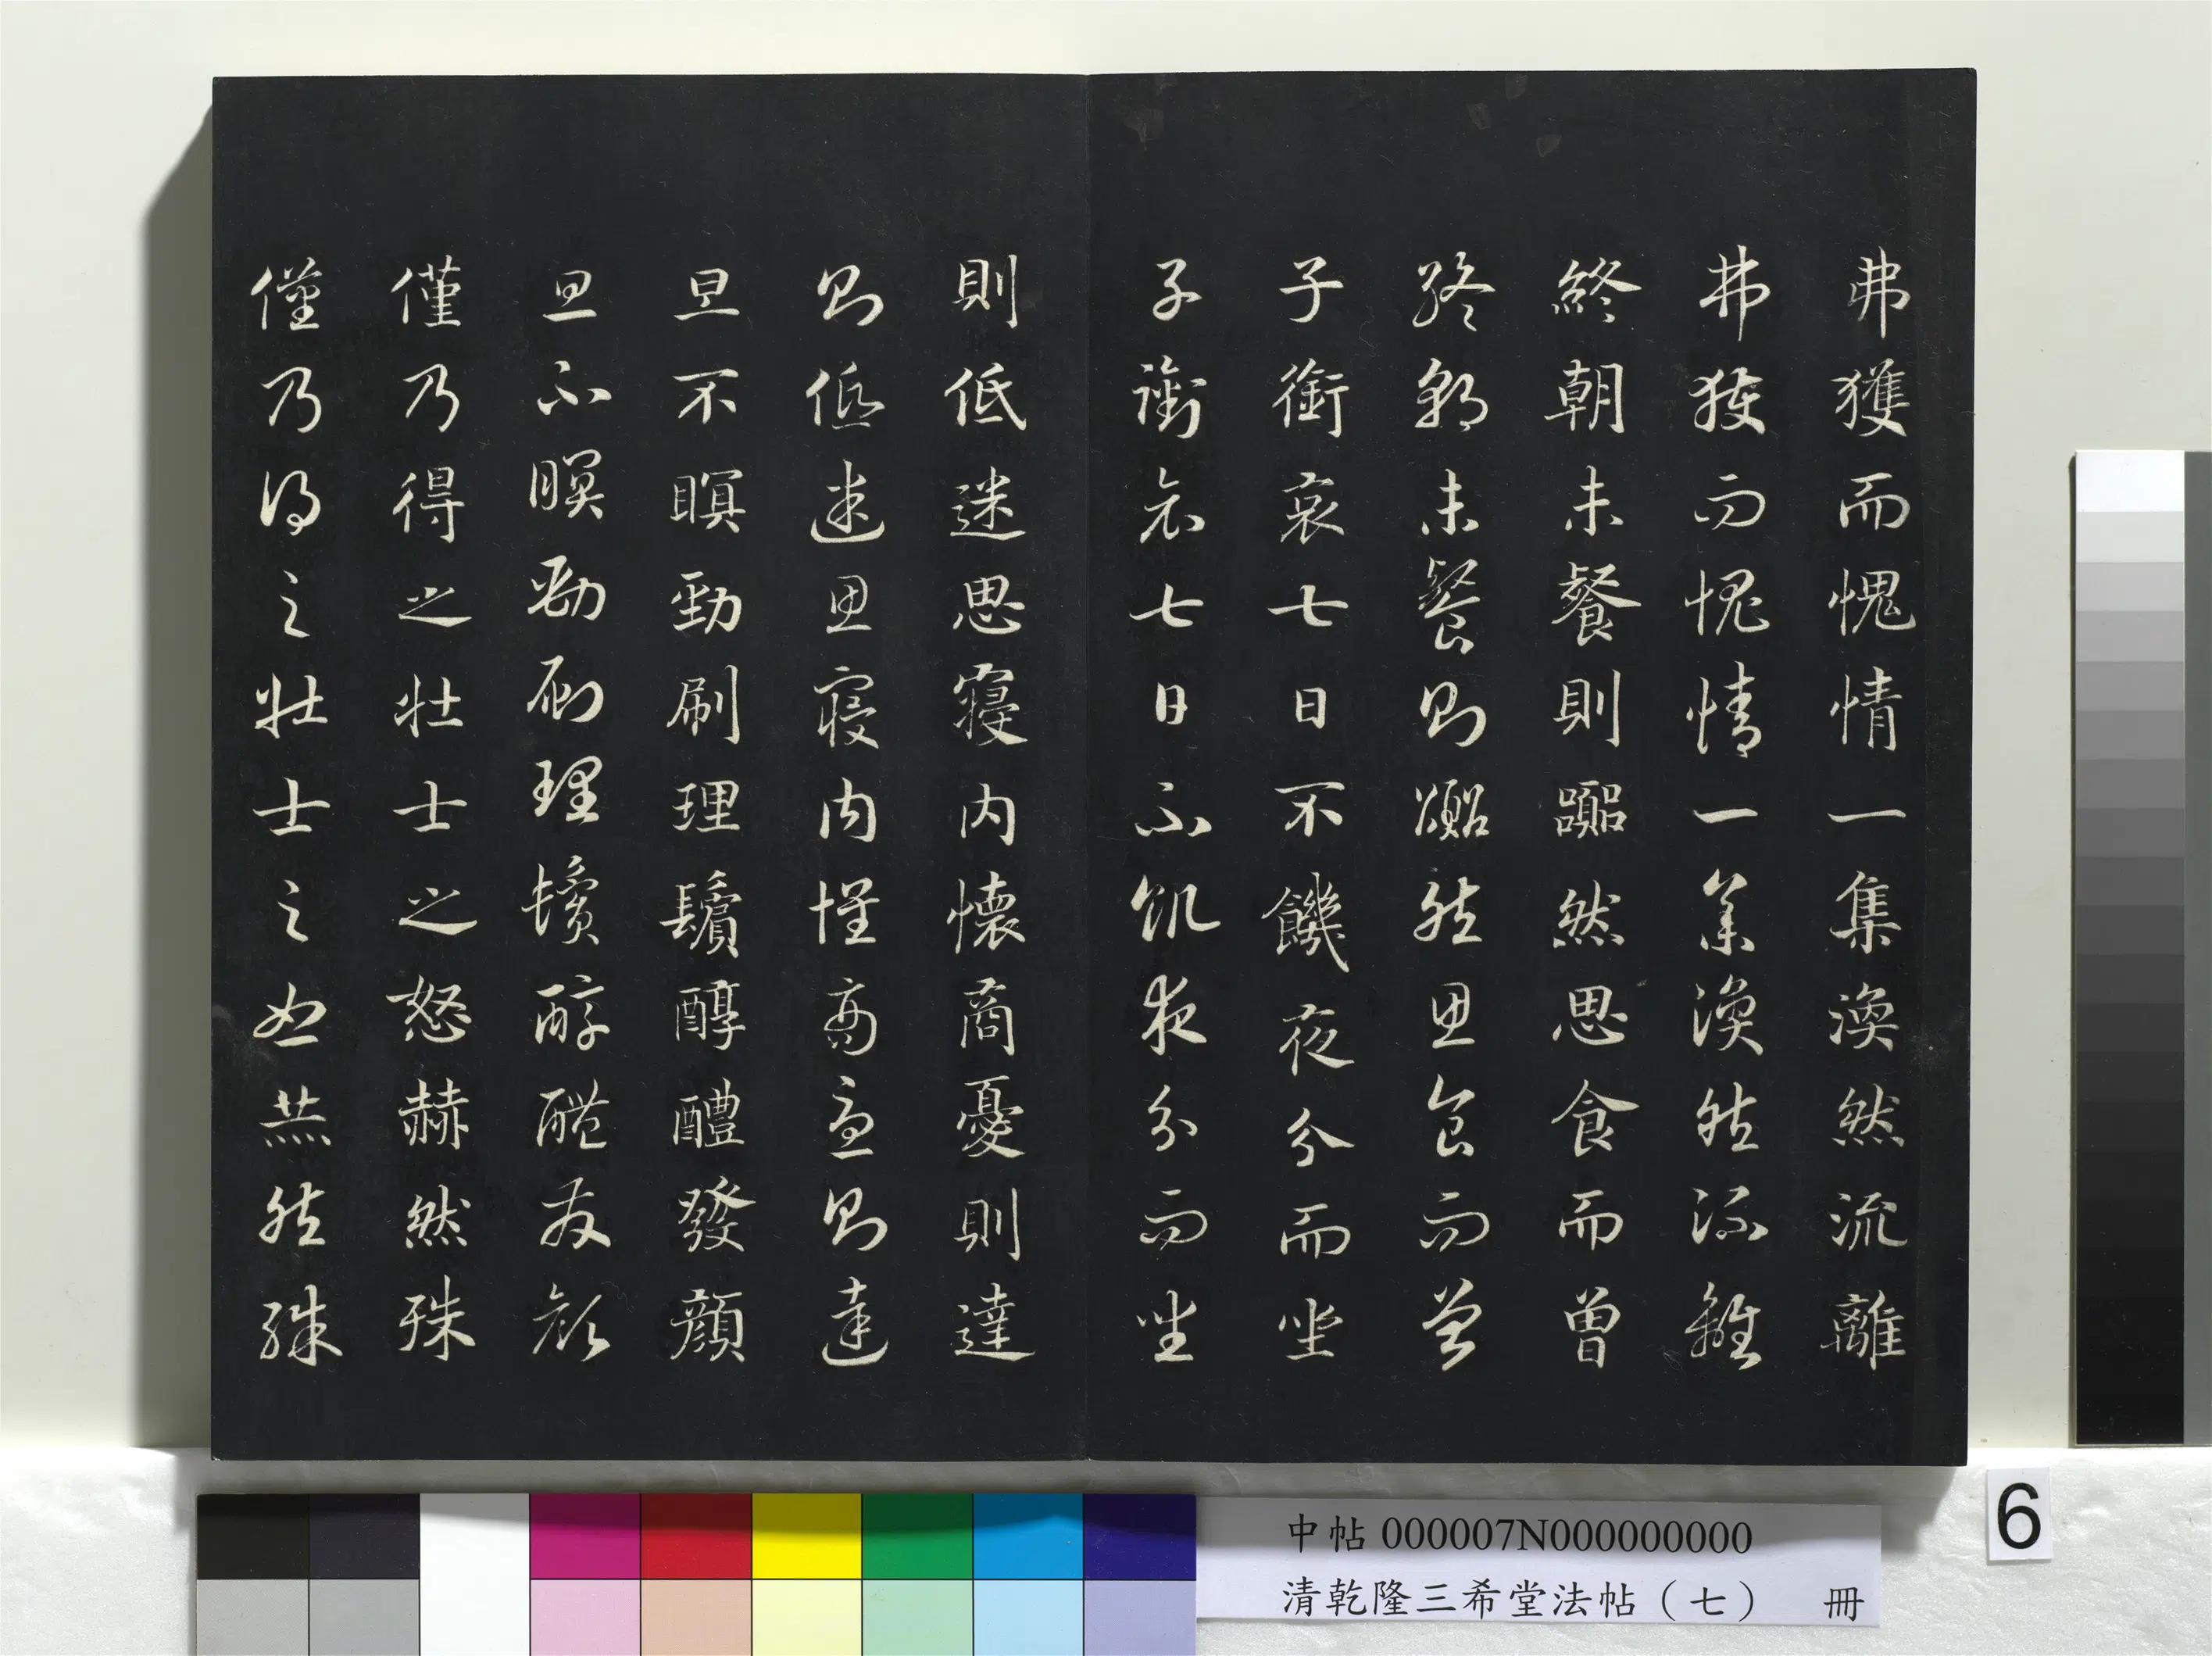 弗獲而愧情一集渙然流離
弗獲而愧情一集渙然流離
終朝未餐則嚻然思食而曽
終朝未餐則嚻然思食而曽
子銜哀七日不饑夜分而坐
子銜哀七日不飢夜分而坐
則低迷思寢内懷商憂則達
則低迷思寢内懷商憂則達
旦不瞑勁刷理鬢醇醴發顔
旦不瞑勁刷理鬢醇醴發顔
僅乃得之壯士之怒赫然殊
僅乃得之壯士之怒赫然殊
中帖 000007N000000000
清乾隆三希堂法帖（七） 冊
6